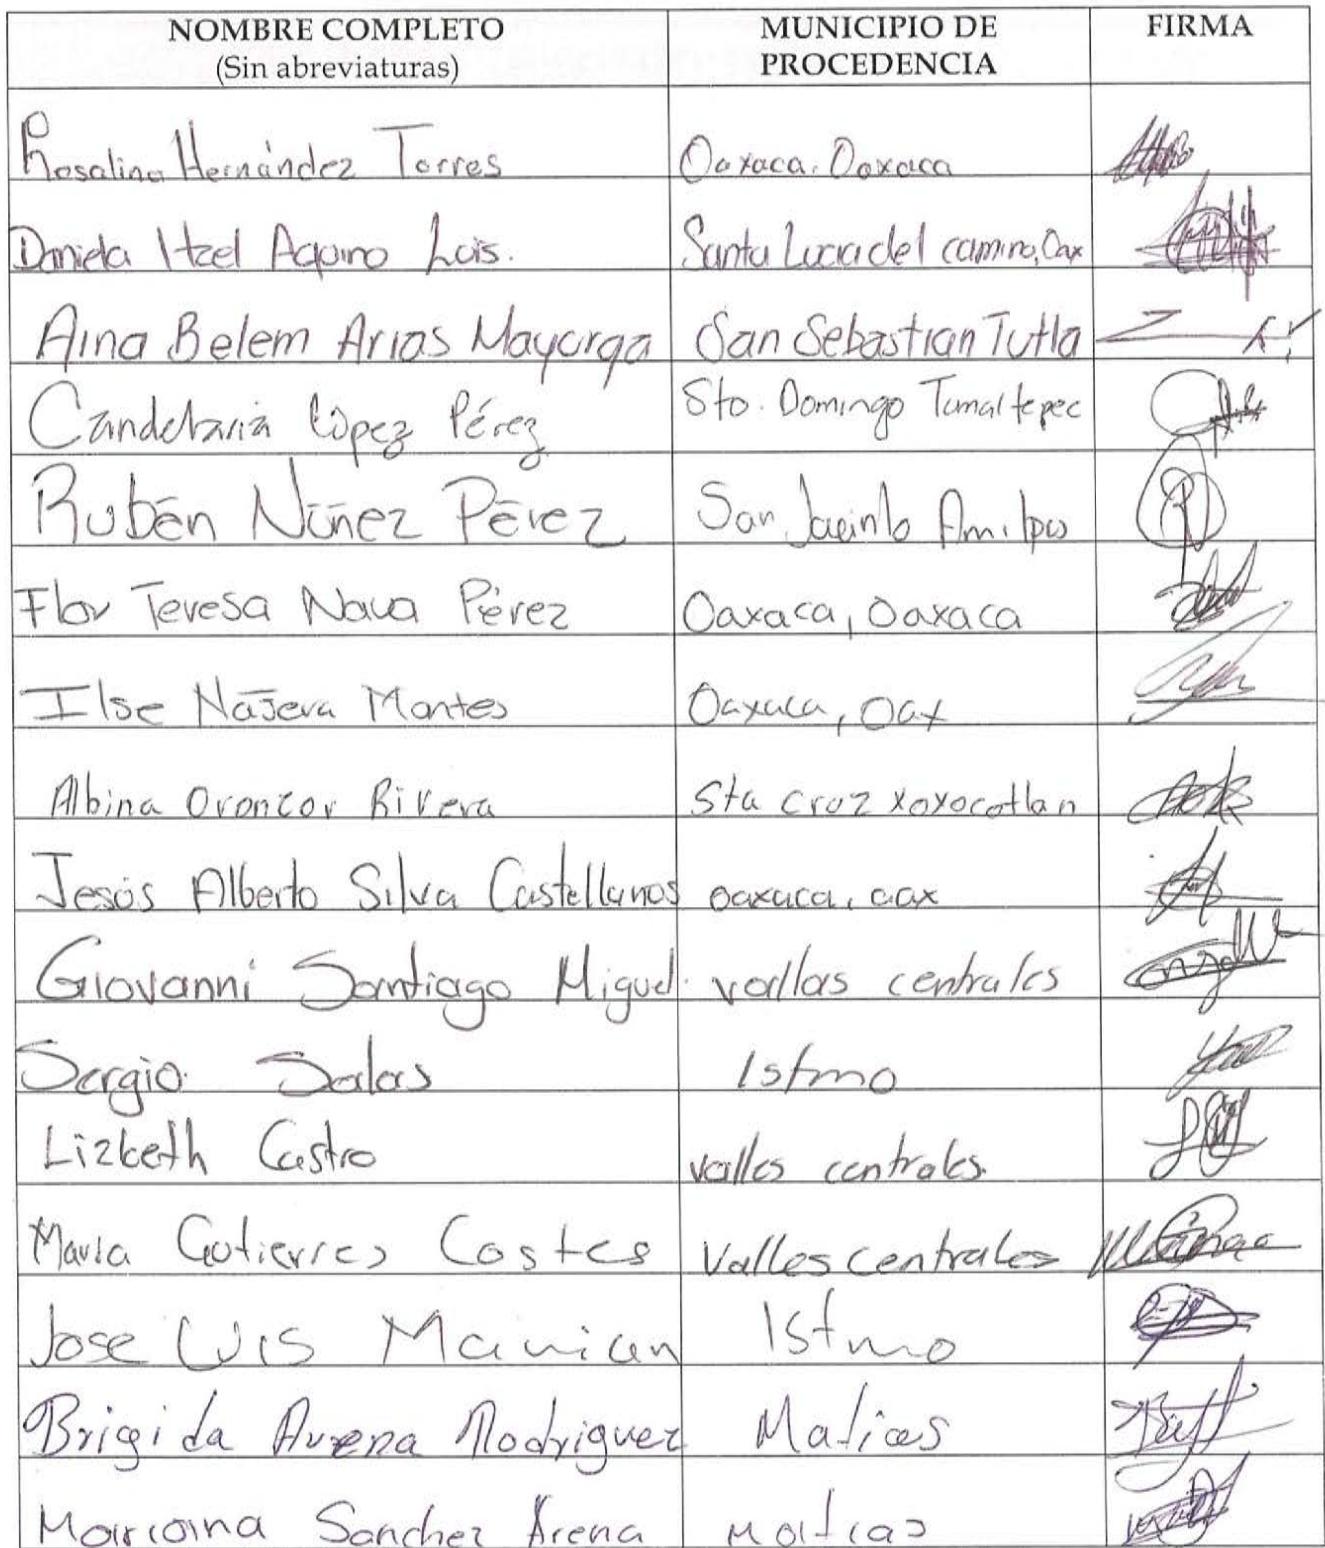 NOMBRE COMPLETO MUNICIPIO DE FIRMA
(Sin abreviaturas) PROCEDENCIA
Rosalina Hernández Torres Oaxaca, Oaxaca
Daniela Itzel Aquino Luis. Santa Lucia del camino, Oax
Aina Belem Arias Mayorga San Sebastian Tutla
Candelaria López Pérez Sto. Domingo Tomaltepec
Rubén Núñez Pérez San Jacinto Amilpas
Flor Teresa Nava Pérez Oaxaca, Oaxaca
Ilse Nájera Montes Oaxaca, Oax
Albina Rivera Sta cruz xoxocotlan
Jesús Alberto Silva Castellanos oaxaca, oax
Giovanni Santiago Miguel valles centrales
Sergio Salas Istmo
Lizbeth Castro valles centrales.
Maria Gutierres Costes Valles centrales
Jose Luis Istmo
Brigida Arena Rodriguez Matias
Marciana Sanchez Arena Matias